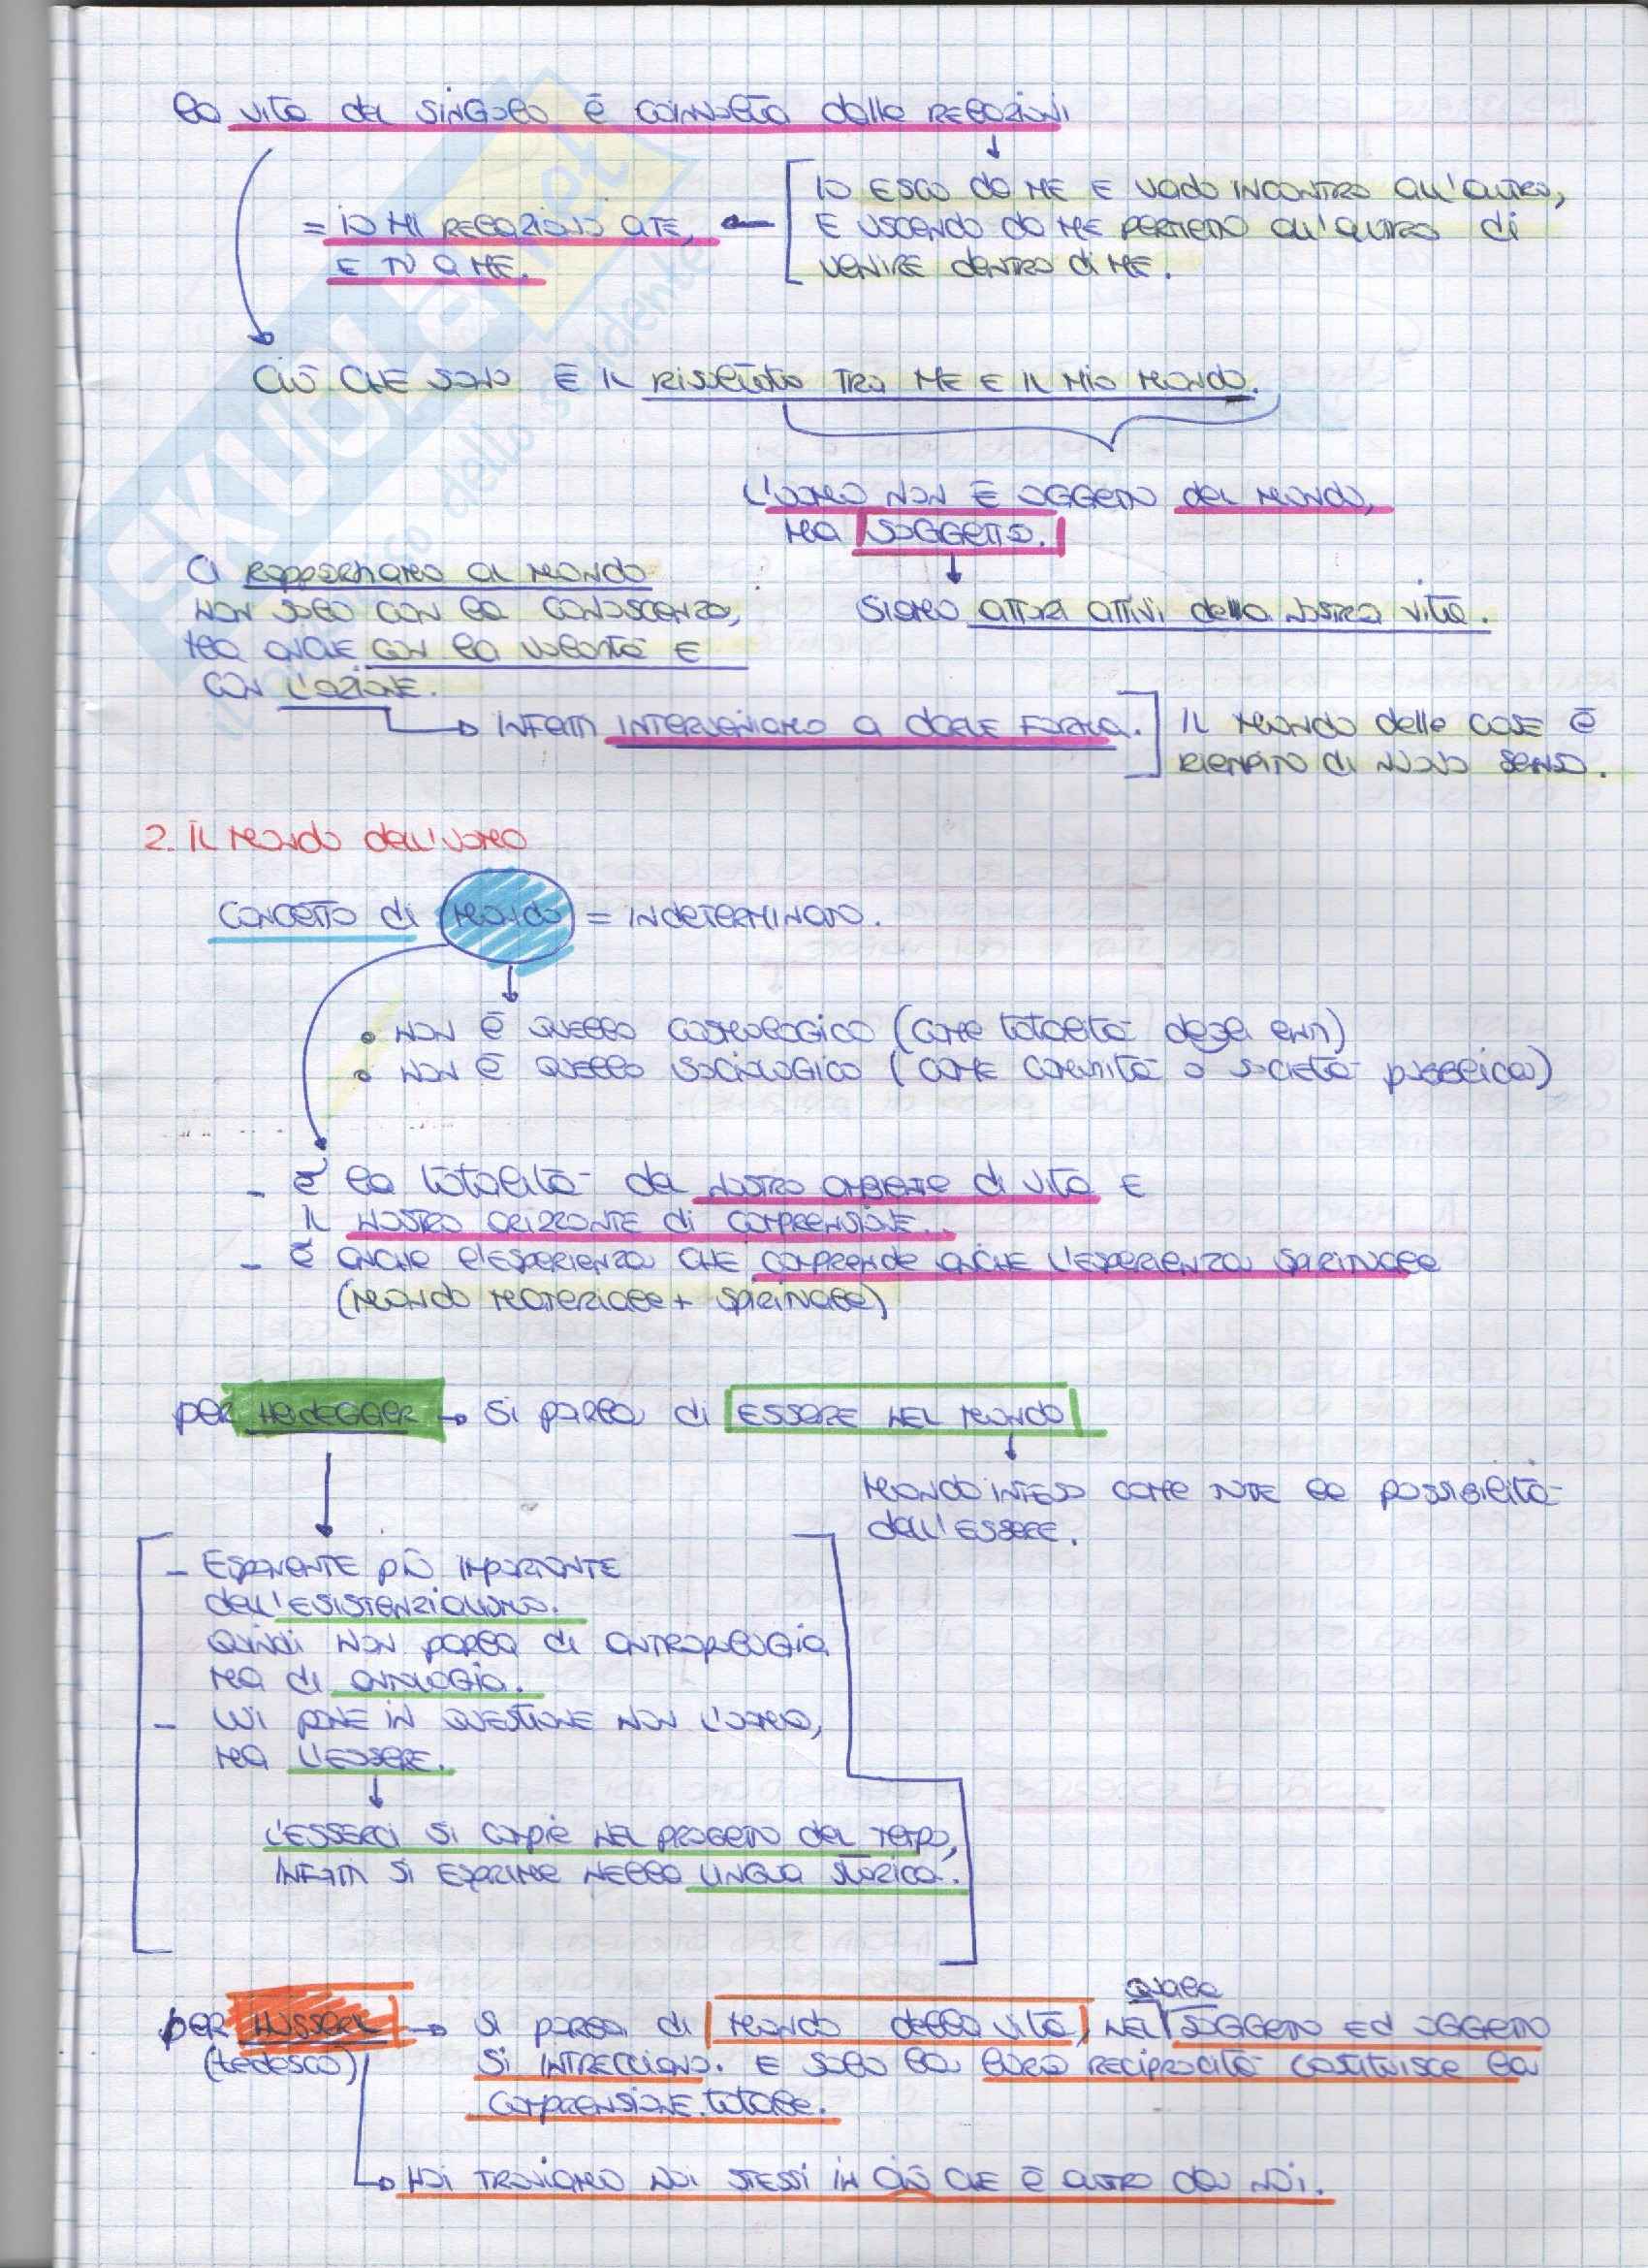 la vita del singolo è coinvolta dalle relazioni
io esco da me e vado incontro all'altro,
e uscendo da me permetto all'altro di
venire dentro di me.
= io mi relaziono a te,
e tu a me.
ciò che sono è il risultato tra me e il mio mondo.
l'uomo non è oggetto del mondo,
ma soggetto.
siamo attori attivi della nostra vita.
ci rapportiamo al mondo
non solo con la conoscenza,
ma anche con la volontà e
con l'azione.
infatti interveniamo a darle forma.
il mondo delle cose è
riempito di nuovo senso.
2. il mondo dell'uomo
concetto di mondo = indeterminato.
• non è quello cosmologico (come totalità degli enti)
• non è quello sociologico (come comunità o società pubblica)
- è la totalità del nostro ambiente di vita e
il nostro orizzonte di comprensione.
- è anche l'esperienza che comprende anche l'esperienza spirituale
(mondo materiale + spirituale)
per Heidegger → si parla di essere nel mondo
mondo inteso come tutte le possibilità
dell'essere.
- esponente più importante
dell'esistenzialismo.
quindi non parla di antropologia
ma di ontologia.
- lui pone in questione non l'uomo,
ma l'essere.
l'esserci si compie nel progetto del tempo,
infatti si esprime nella lingua storica.
per Husserl → si parla di mondo della vita, nel quale soggetto ed oggetto
(tedesco)
si intrecciano. e solo la loro reciprocità costituisce la
comprensione totale.
noi troviamo noi stessi in ciò che è altro da noi.
SKUOLA.net
il paradiso dello studente